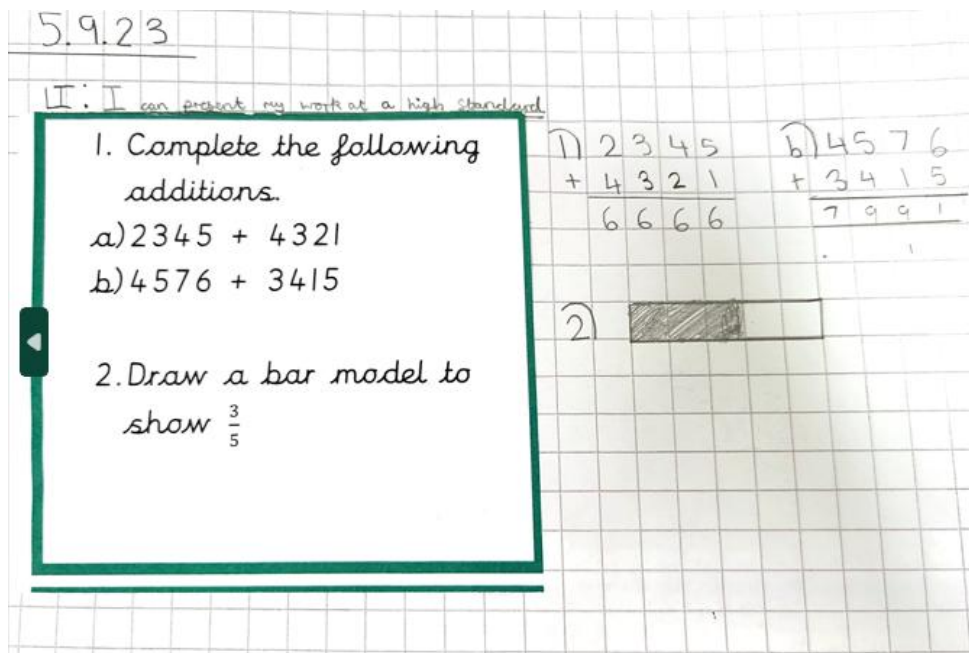 5.9.23
LI: I can present my work at a high standard
1. Complete the following
additions.
a) 2345 + 4321
b) 4576 + 3415
2. Draw a bar model to
show 3/5
1) 2345
+ 4321
6666
b) 4576
+ 3415
7991
1
2)